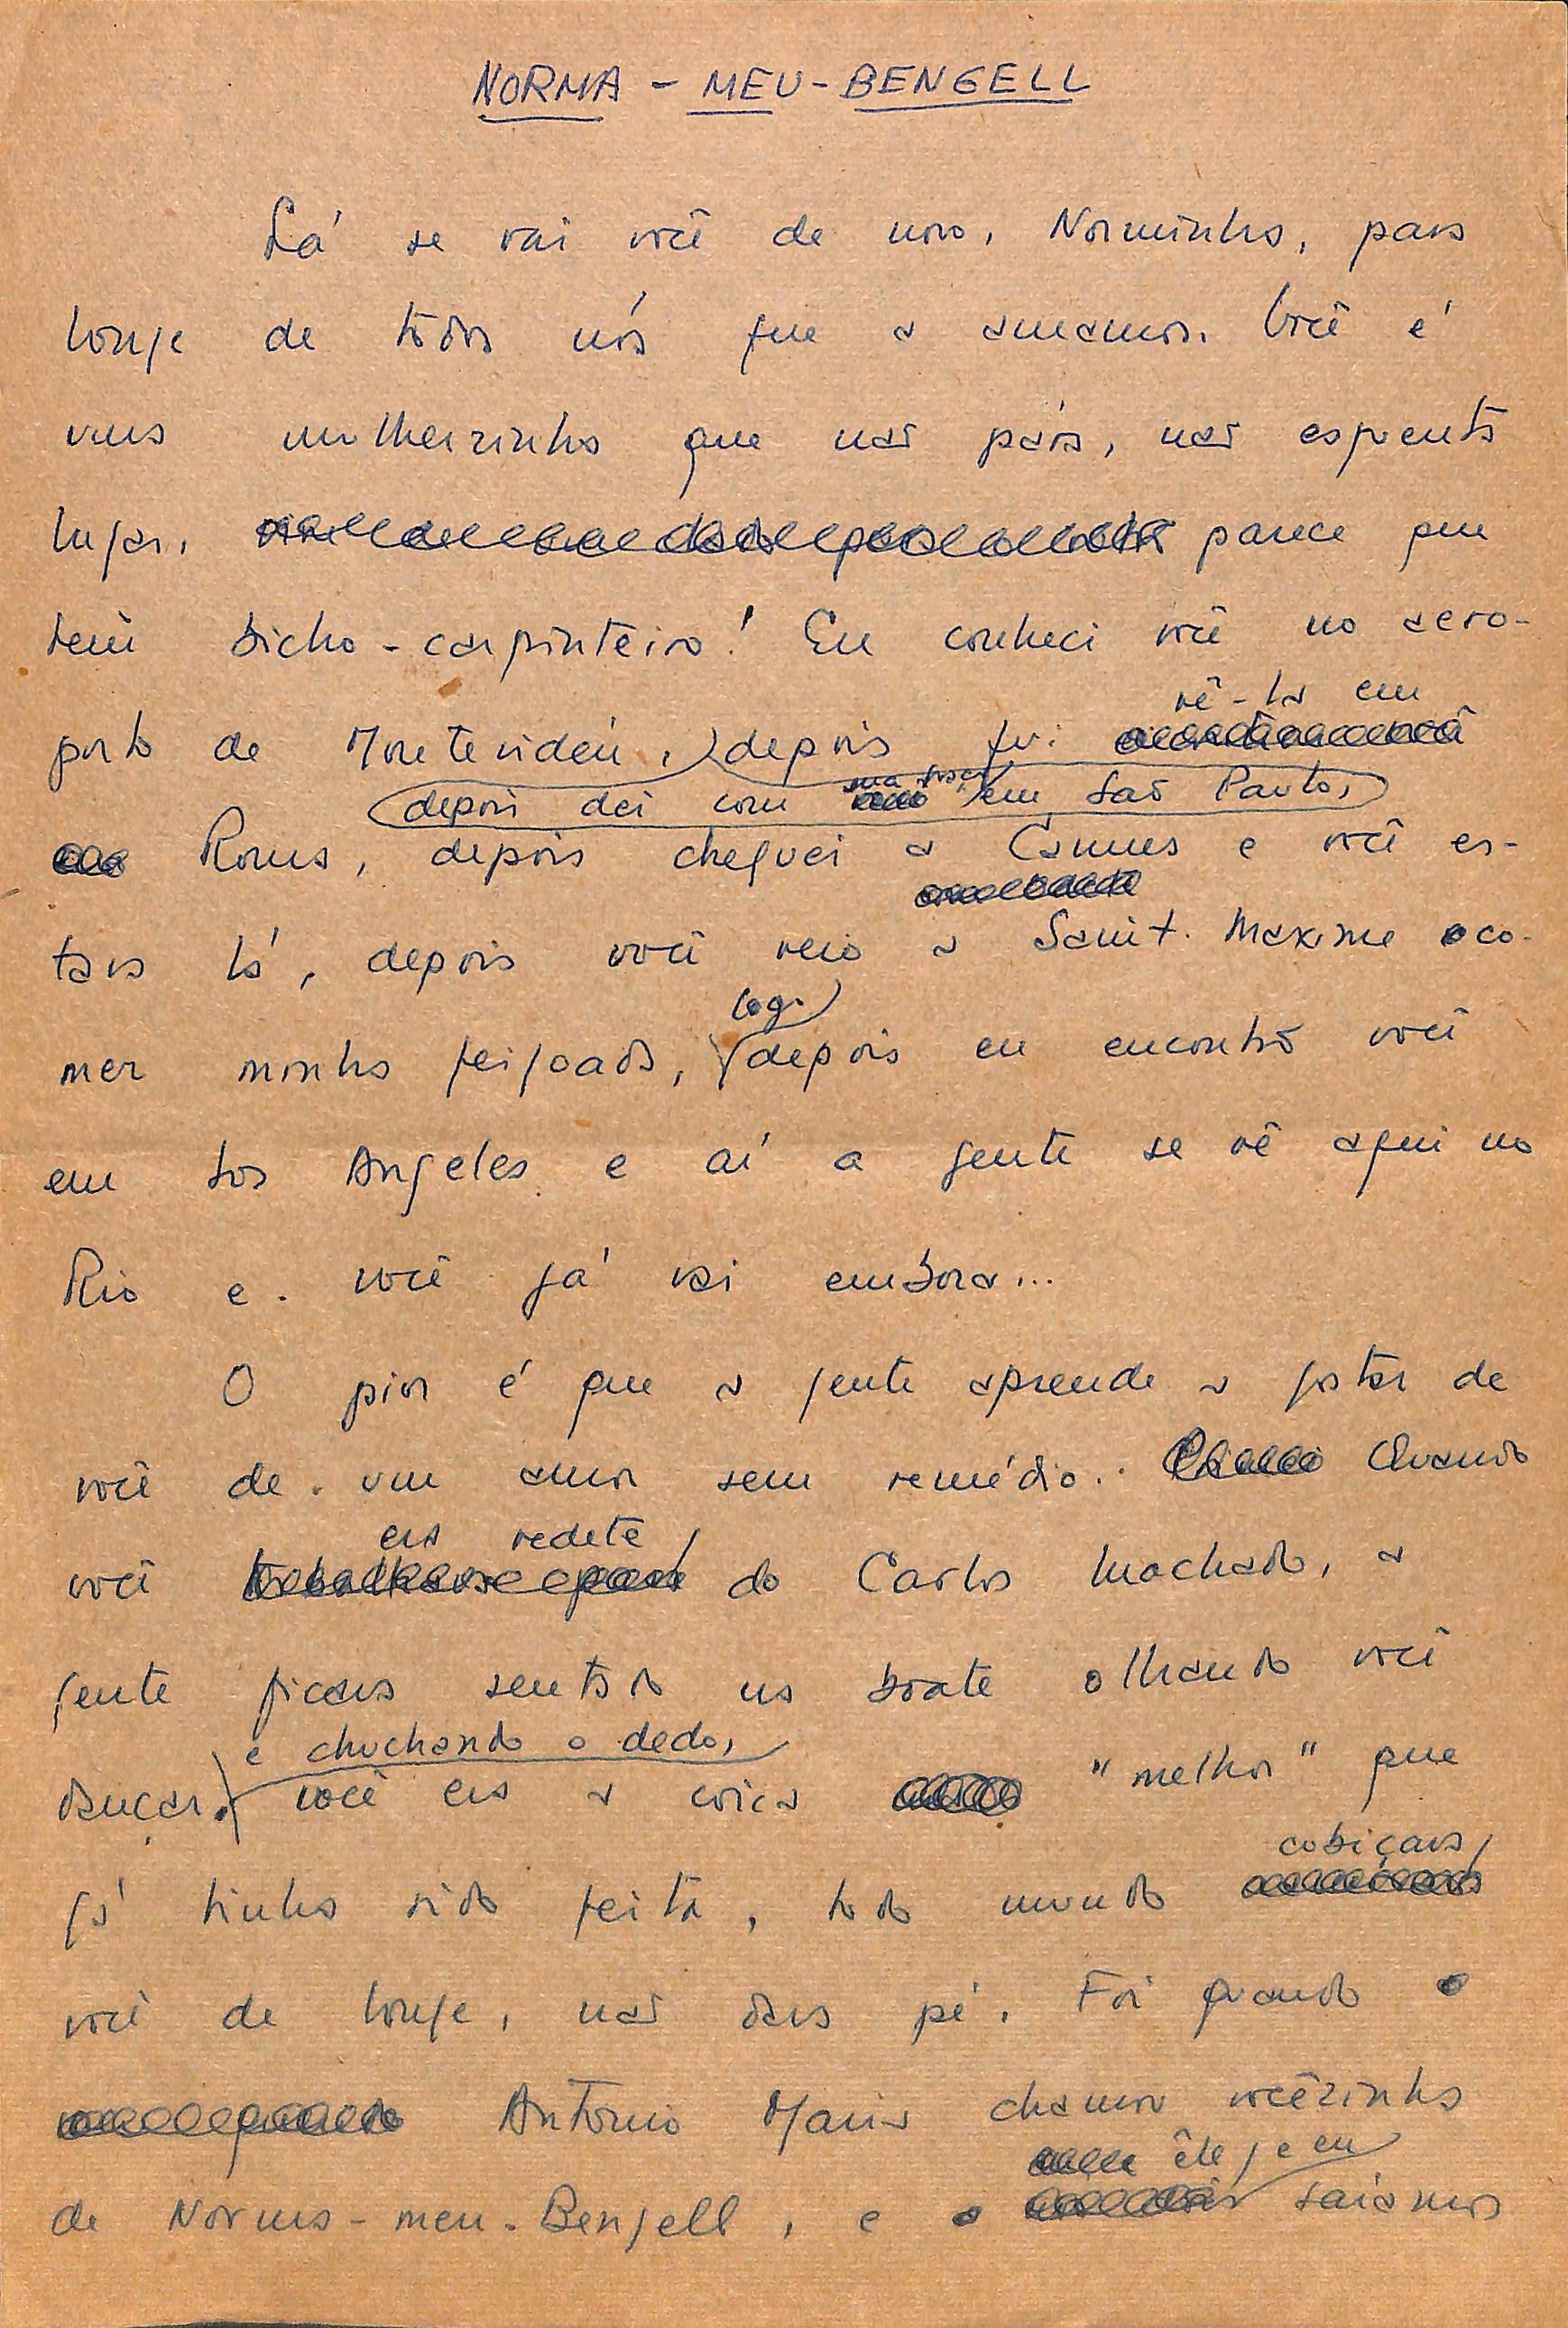 NORMA - MEU - BENGELL
Lá se vai você de novo, Norminha, para
longe de todos nós que a amamos. Você é
uma mulherzinha que não pára, não esquenta
lugar, parece que
tem bicho-carpinteiro! Eu conheci você no aero-
vê-la em
porto de Montevidéu, depois fui
depois dei com sua em São Paulo,
Roma, depois cheguei a Cannes e você es-
tava lá, depois você veio a Saint. Maxime co-
logo
mer minha feijoada, depois eu encontro você
em Los Angeles e aí a gente se vê aqui no
Rio e você já vai embora...
O pior é que a gente aprende a gostar de
você de um amor sem remédio. Quando
era vedete
você do Carlos Machado, a
gente ficava sentado na boate olhando você
e chuchando o dedo,
dançar. você era a coisa "melhor" que
cobiçava
já tinha sido feita, todo mundo
você de longe, não dava pé. Foi quando o
Antonio Maria chamou vocêzinha
êle e eu
de Norma-meu-Bengell, e saíamos